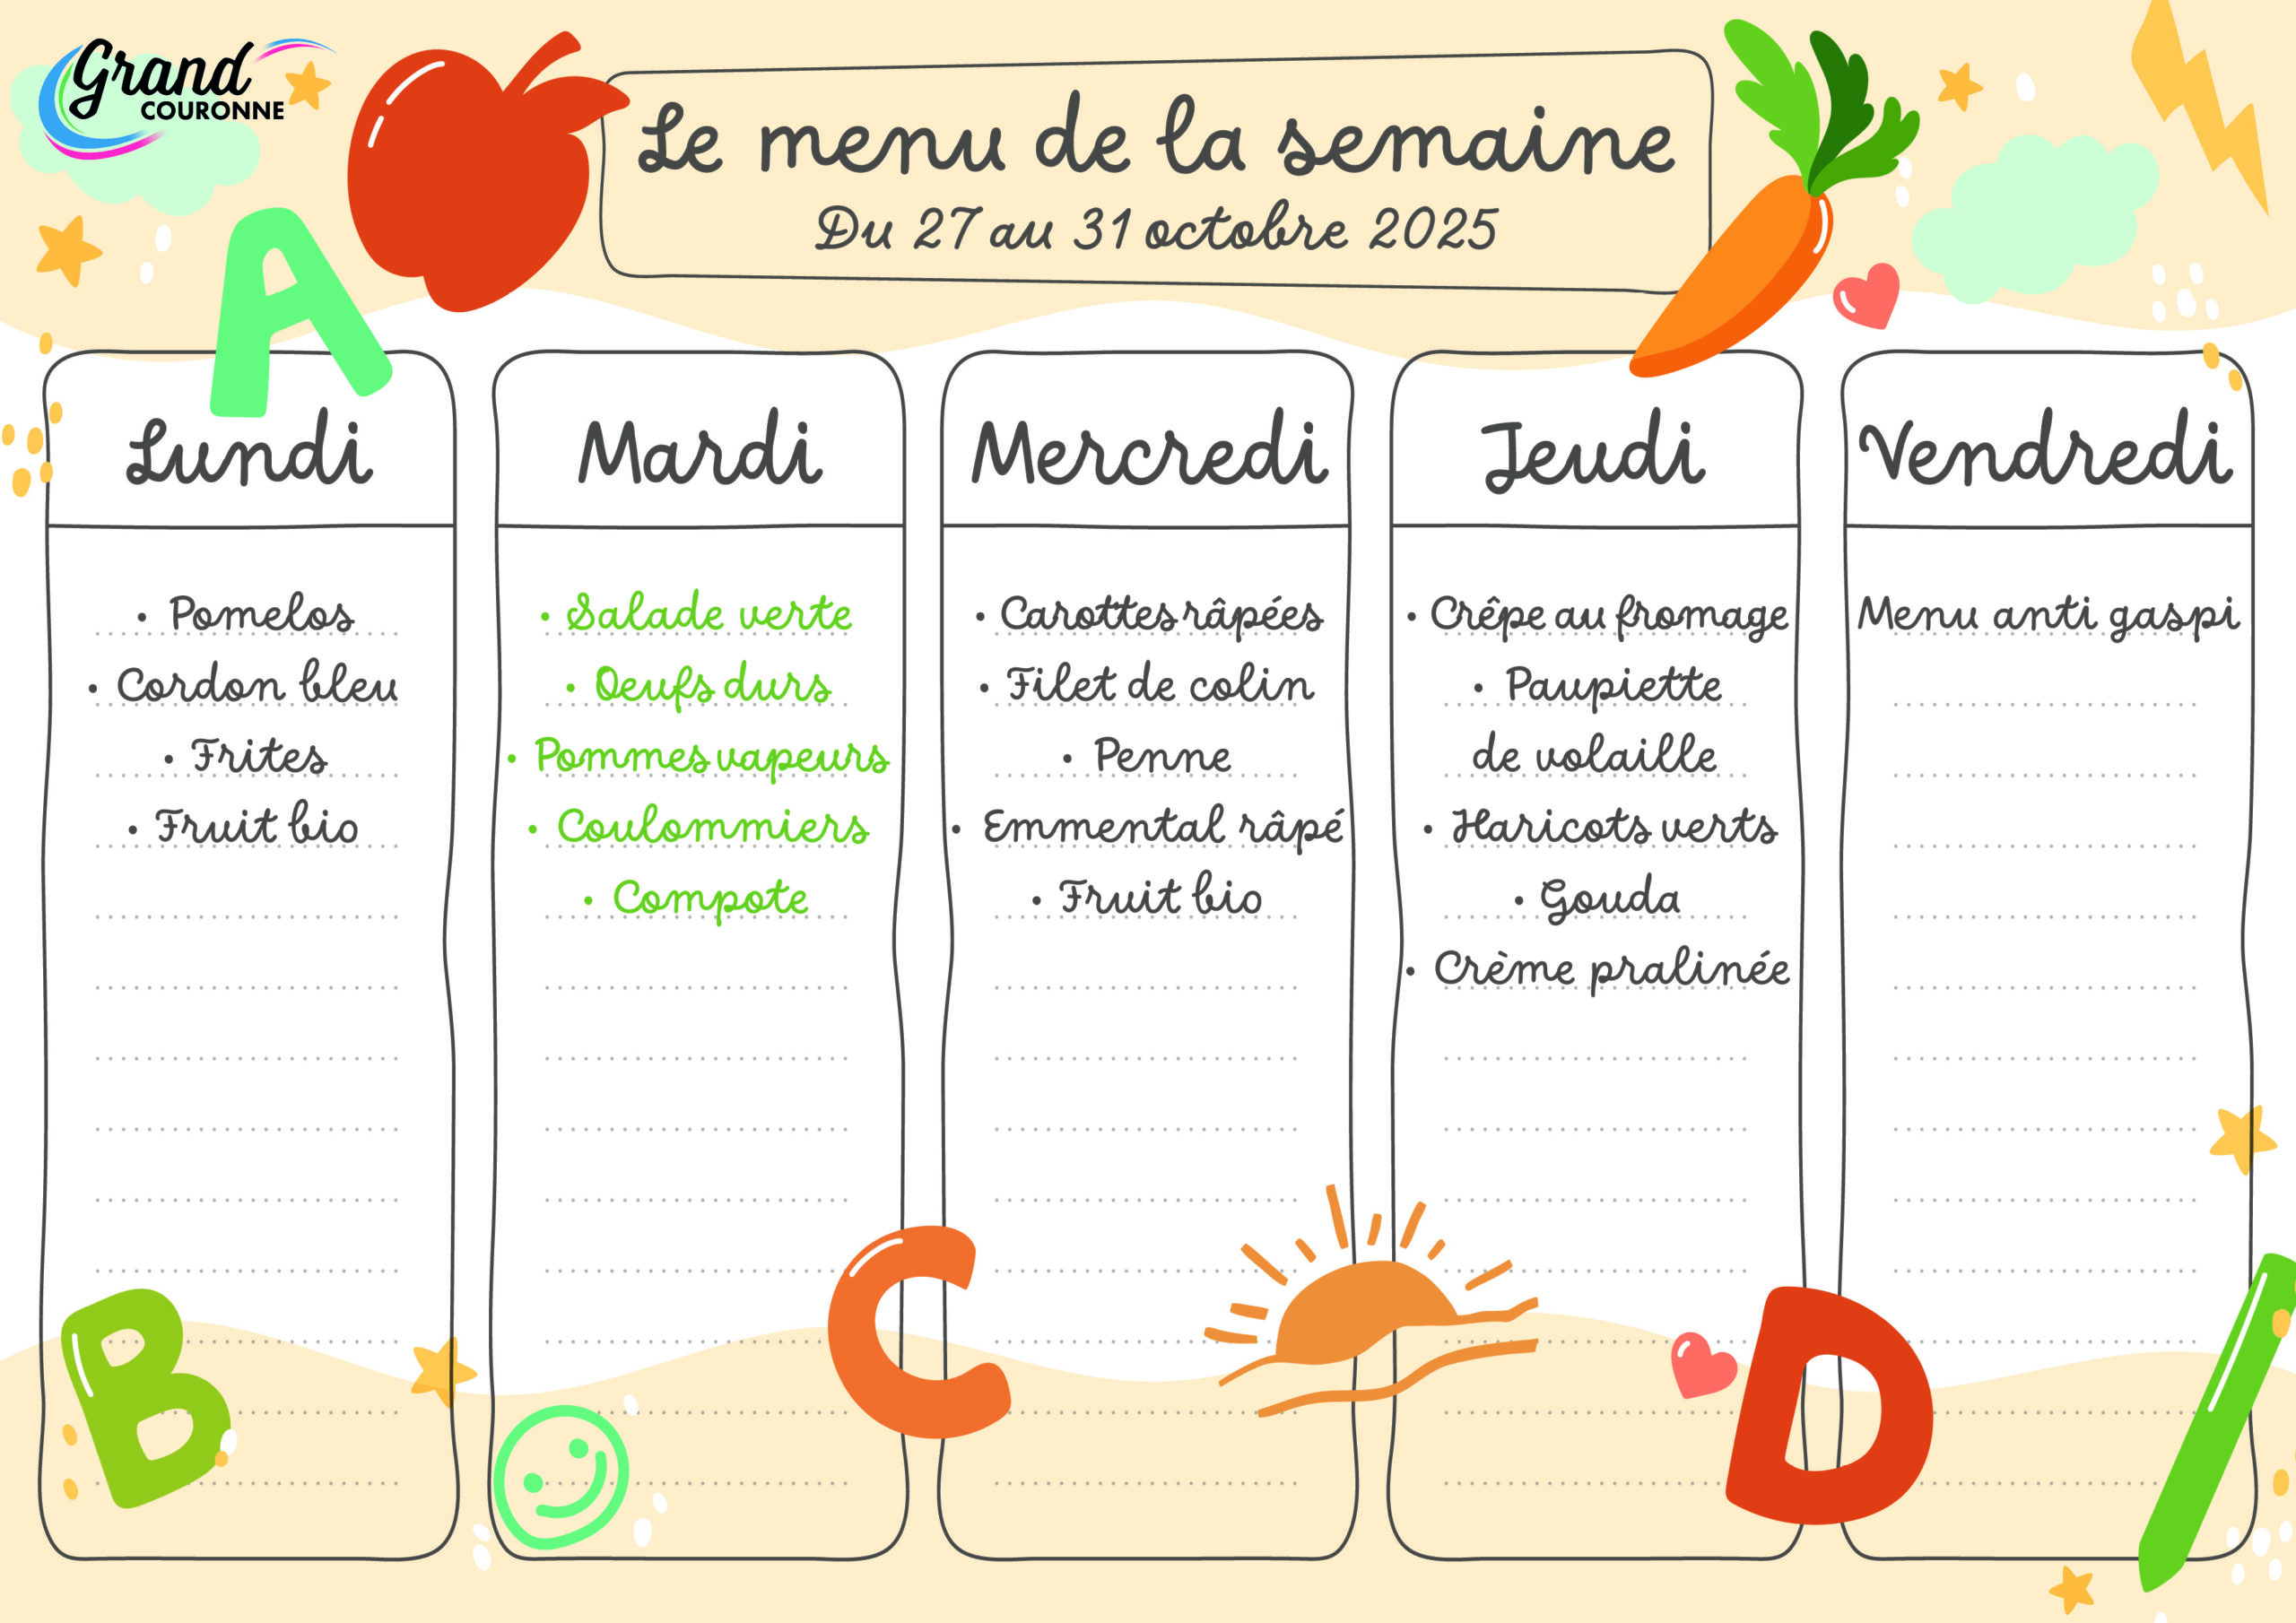 Grand
COURONNE
Le menu de la semaine
Du 27 au 31 octobre 2025
A
Lundi
• Pomelos
• Cordon bleu
• Frites
• Fruit bio
Mardi
• Salade verte
• Oeufs durs
• Pommes vapeurs
• Coulommiers
• Compote
Mercredi
• Carottes râpées
• Filet de colin
• Penne
• Emmental râpé
• Fruit bio
Jeudi
• Crêpe au fromage
• Paupiette
de volaille
• Haricots verts
• Gouda
• Crème pralinée
Vendredi
Menu anti gaspi
B
C
D